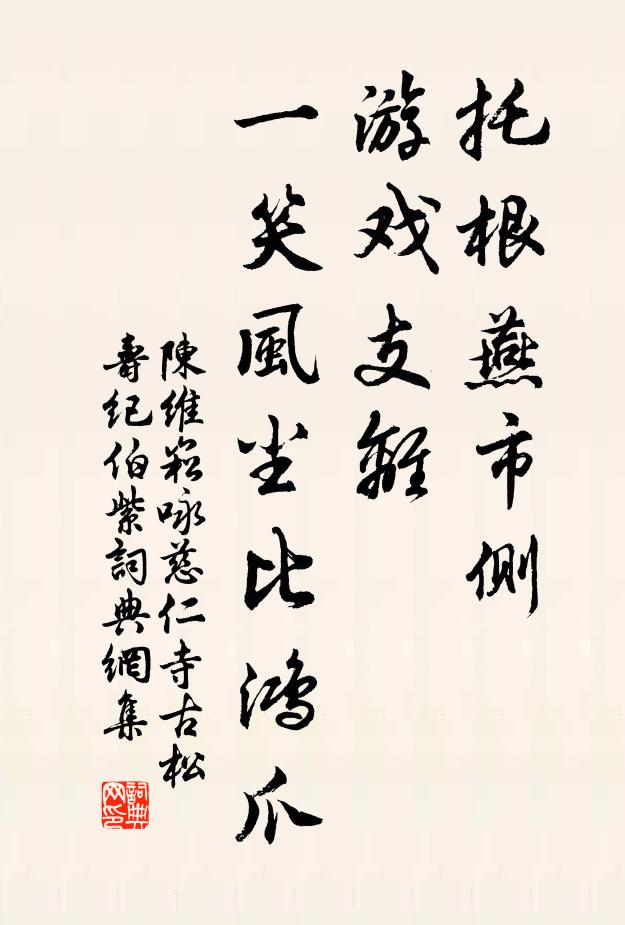 托根燕市側
游戏支離
一笑風尘比鴻爪
陳維崧咏慈仁寺古松
壽纪伯紫詞典網集
詞典网印